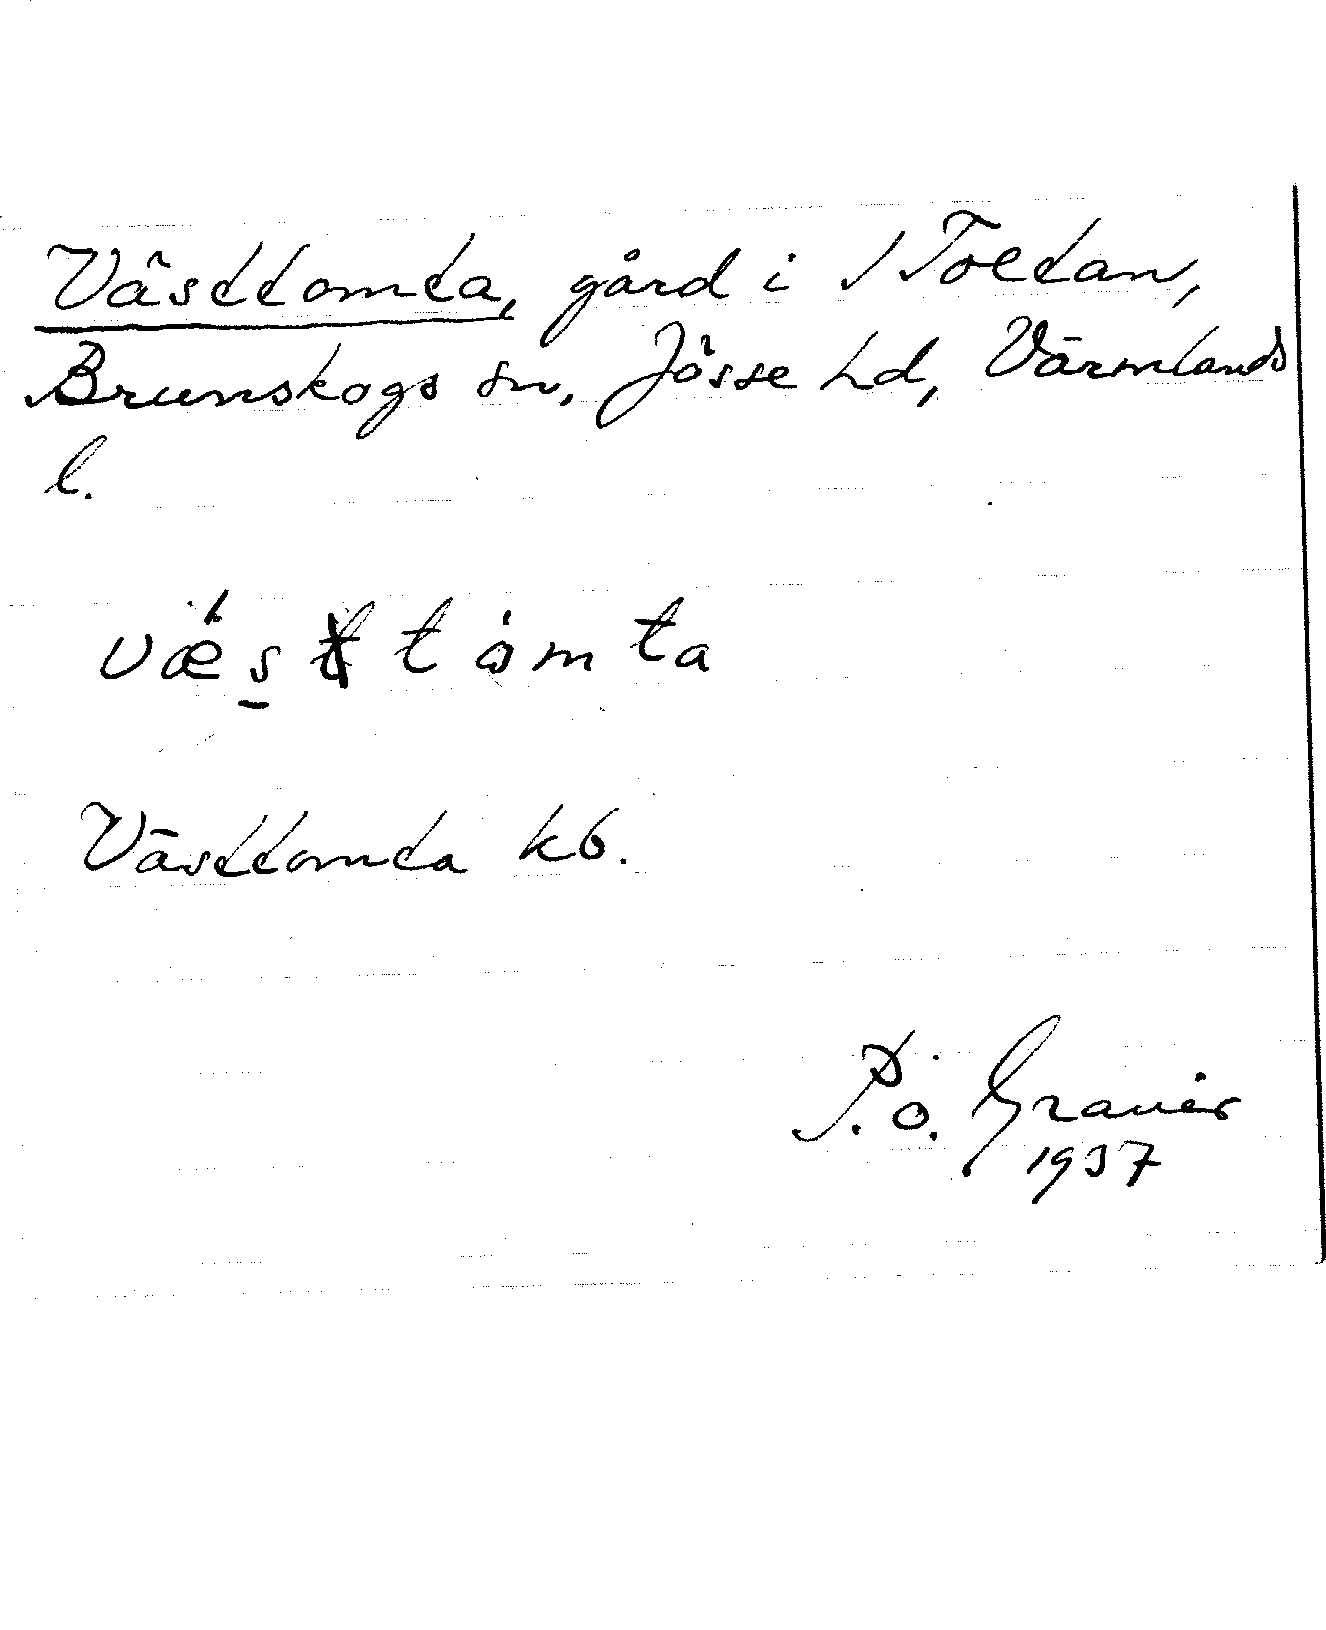 Västtomta, gård i 1 Toltan,
Brunskogs sn, Jösse hd, Värmlands
l.
vǽs̱ t ȧm ta
Västtomta kb.
P. Ö. Graner
1937